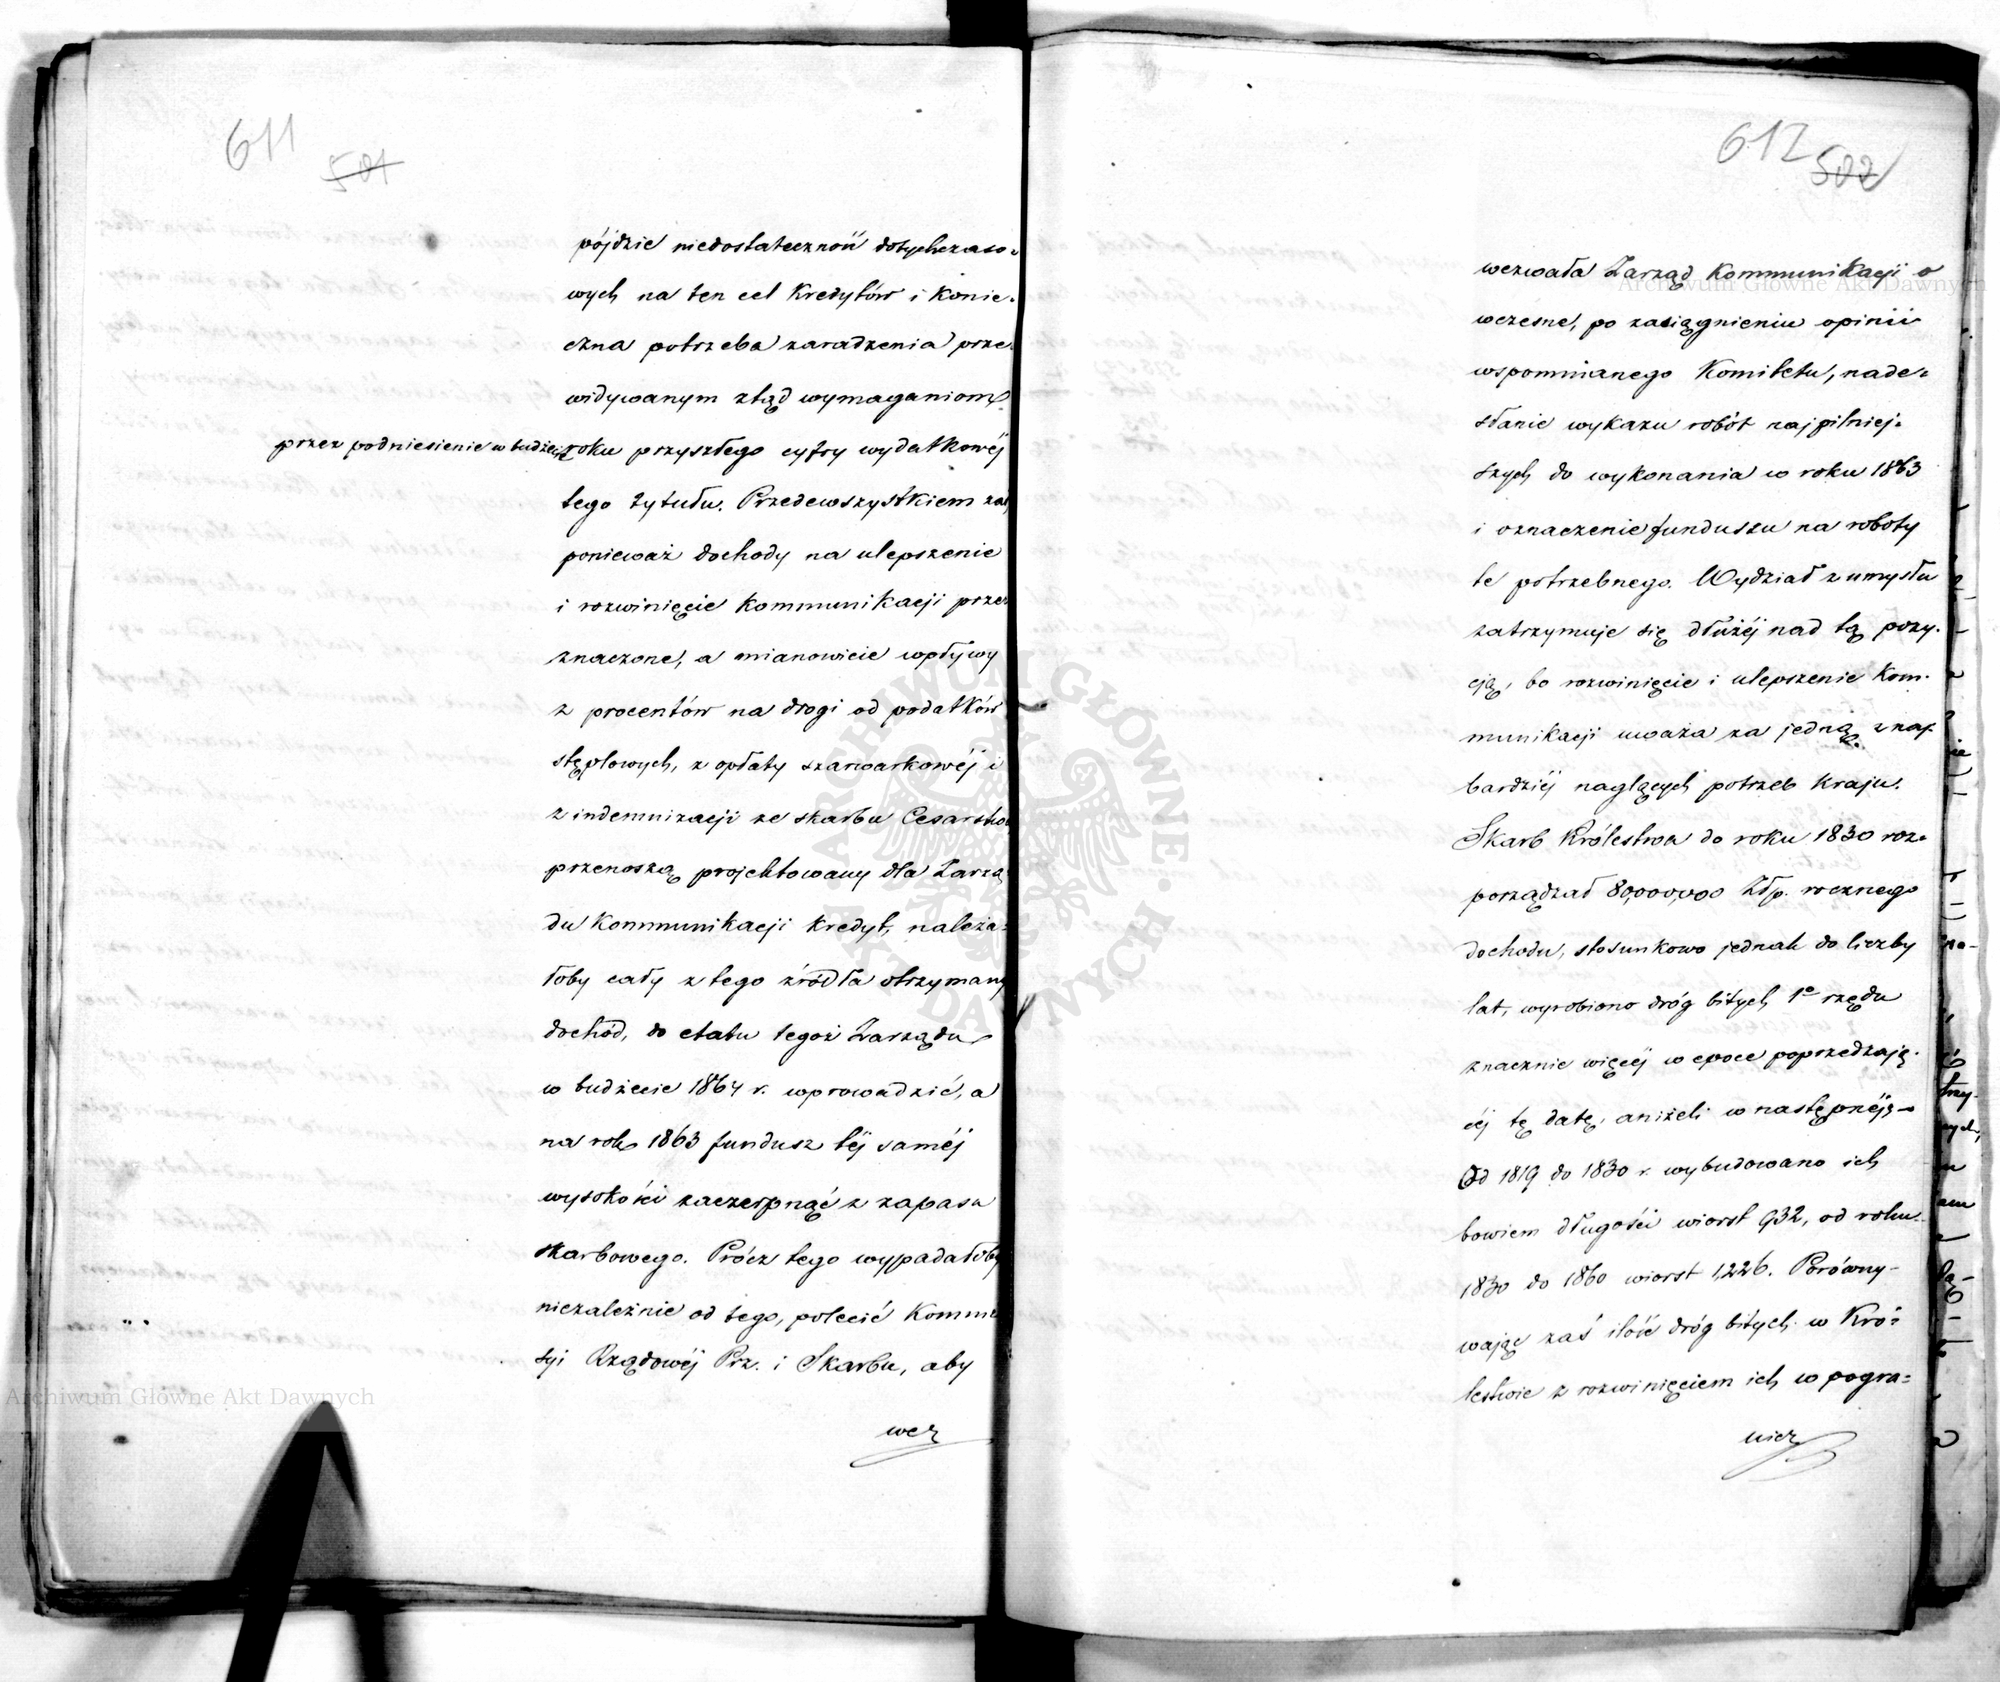 611
501
pójdzie niedostateczność dotychczaso-
wych na ten cel Kredytów i Konie-
czna potrzeba zaradzenia prze-
widywanym ztąd wymaganiom
przez podniesienie w budżecie roku przyszłego cyfry wydatkowéj
tego tytułu. Przedewszystkiem zaś
ponieważ dochody na ulepszenie
i rozwinięcie Kommunikacji prze-
znaczone, a mianowicie wpływy
z procentów na drogi od podatków
stęplowych, z opłaty szarwarkowéj i
z indemnizacji ze skarbu Cesarstwa
przenoszą projektowany dla Zarzą-
du Kommunikacji Kredyt, należa-
łoby cały z tego źródła otrzymany
dochód, do etatu tegoż Zarządu
w budżecie 1864 r. wprowadzić, a
na rok 1863 fundusz téj saméj
wysokości zaczerpnąć z zapasu
skarbowego. Prócz tego wypadałoby
niezależnie od tego, polecić Kommis-
syi Rządowéj Prz. i Skarbu, aby
wez
612
502
wezwała Zarząd Kommunikacji o
wczesne, po zasiągnieniu opinii
wspomnianego Komitetu, nade-
słanie wykazu robót najpilniej-
szych do wykonania w roku 1863
i oznaczenie funduszu na roboty
te potrzebnego. Wydział z umysłu
zatrzymuje się dłużéj nad tą pozy-
cją, bo rozwinięcie i ulepszenie Kom-
munikacji uważa za jedną z naj-
bardziéj naglących potrzeb Kraju.
Skarb Królestwa do roku 1830 roz-
porządzał 80,000,000 Złp. rocznego
dochodu, stosunkowo jednak do liczby
lat, wyrobiono dróg bitych 1o rzędu
znacznie więcéj w epoce poprzedzają-
céj tę datę, aniżeli w następnéj;-
Od 1819 do 1830 r. wybudowano ich
bowiem długości wiorst 932, od roku
1830 do 1860 wiorst 1,226. Porówny-
wając zaś ilość dróg bitych w Kró-
lestwie z rozwinięciem ich w pogra-
nicz
Archiwum Główne Akt Dawnych
Archiwum Główne Akt Dawnych
ARCHIWUM GŁÓWNE AKT DAWNYCH